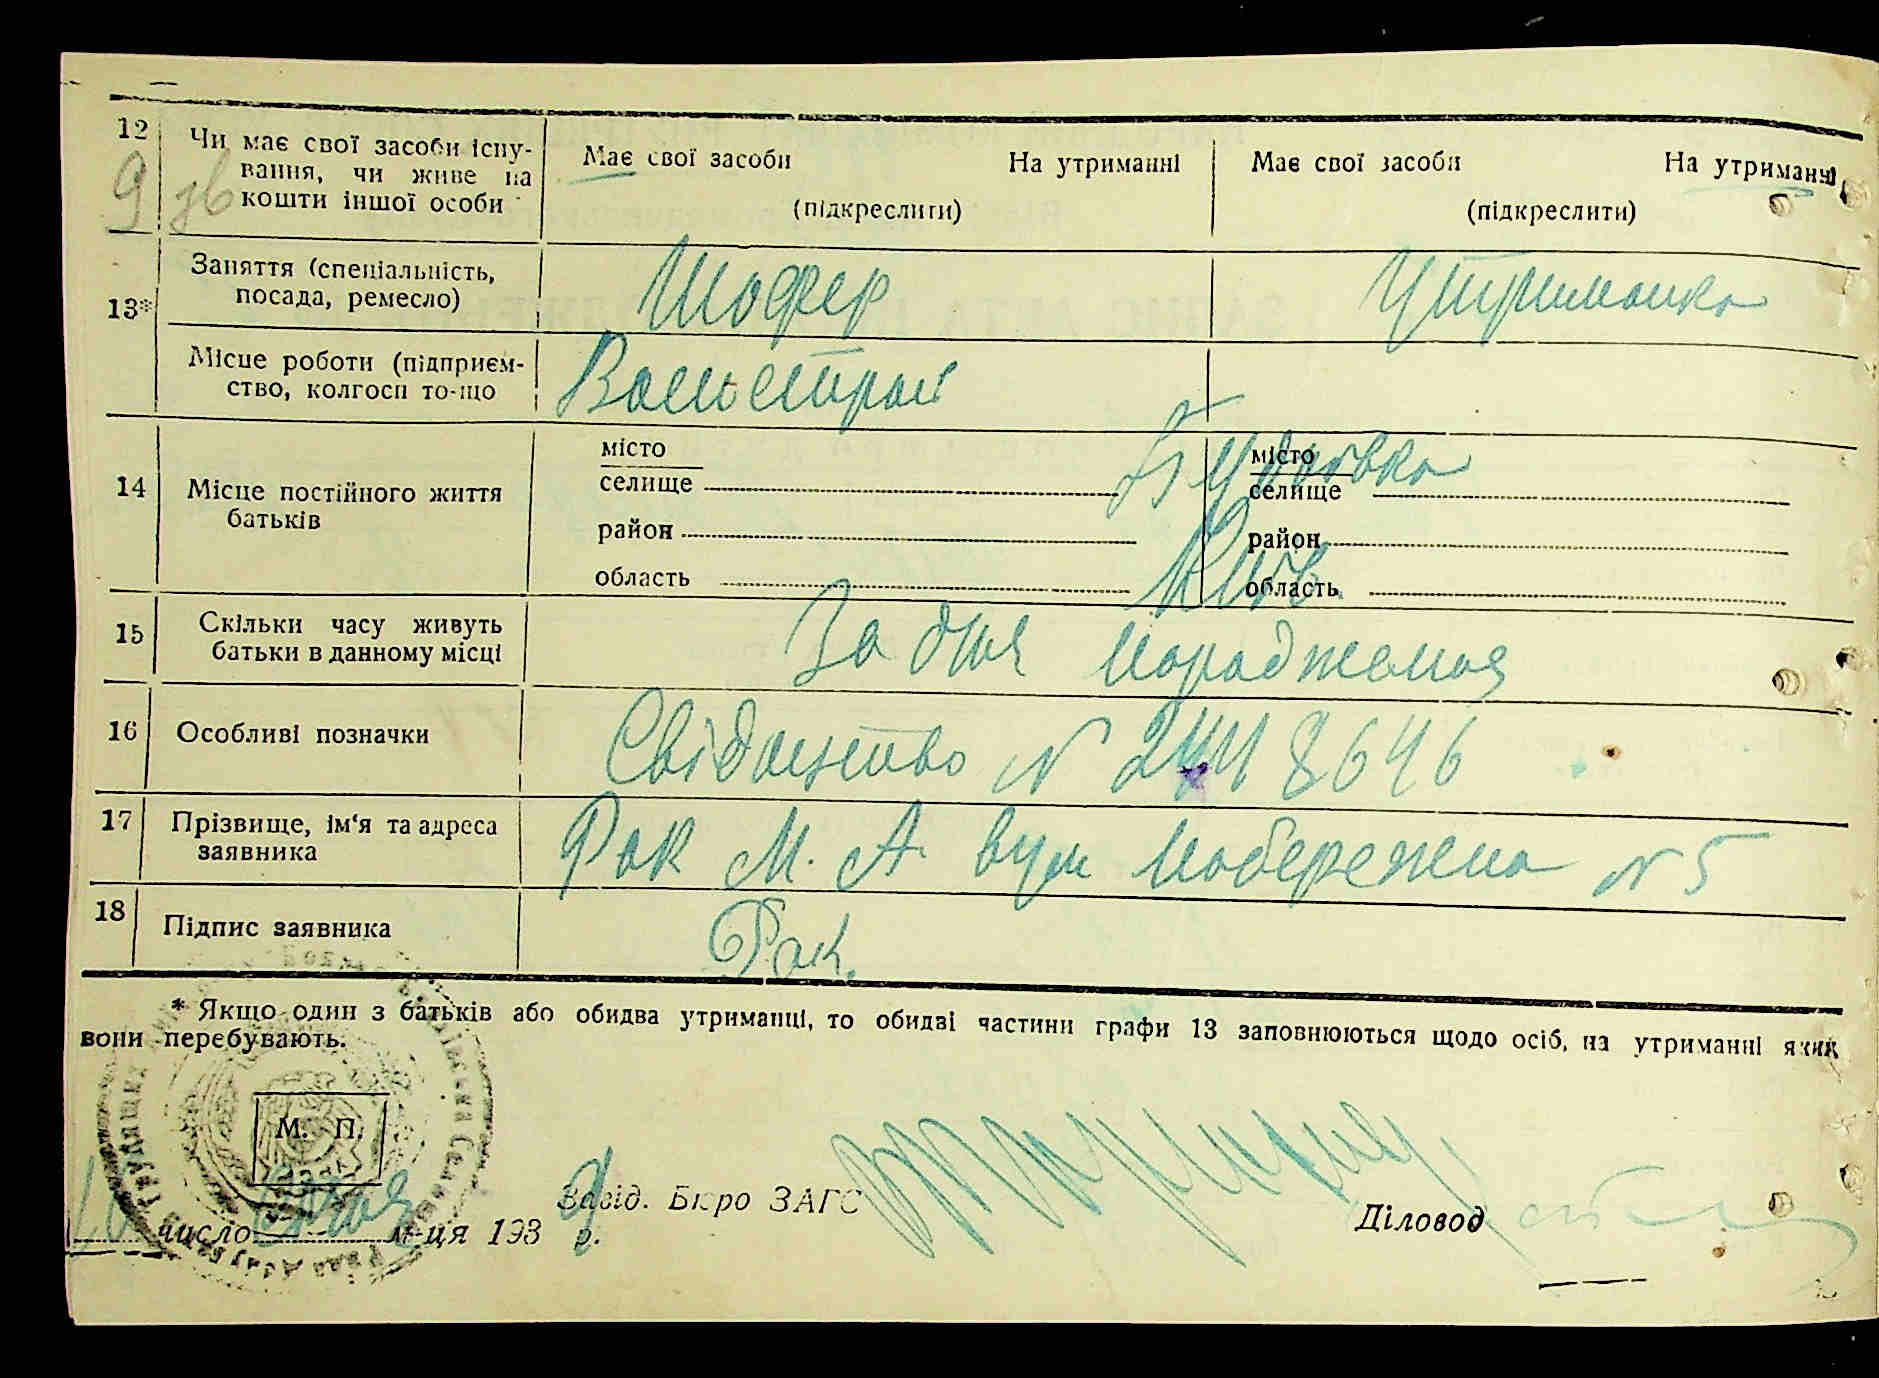 12 Чи має свої засоби існу-
вання, чи живе на
кошти іншої особи
Має свої засоби На утриманні
(підкреслити)
Має свої засоби На утриманні
(підкреслити)
9 зв
13* Заняття (спеціальність,
посада, ремесло)
Шофер
Утриманка
Місце роботи (підприєм-
ство, колгосп то-що
14 Місце постійного життя
батьків
місто
селище
район
область
місто
селище
район
область
Київ
15 Скільки часу живуть
батьки в данному місці
За дня народження
16 Особливі позначки
Свідоцтво N 8646
17 Прізвище, ім'я та адреса
заявника
Рак М. А. вул Набережна N 5
18 Підпис заявника
Рак.
* Якщо один з батьків або обидва утриманці, то обидві частини графи 13 заповнюються щодо осіб, на утриманні яких
вони перебувають.
М. П.
число січня м-ця 1939 р.
Завід. Бюро ЗАГС
Діловод